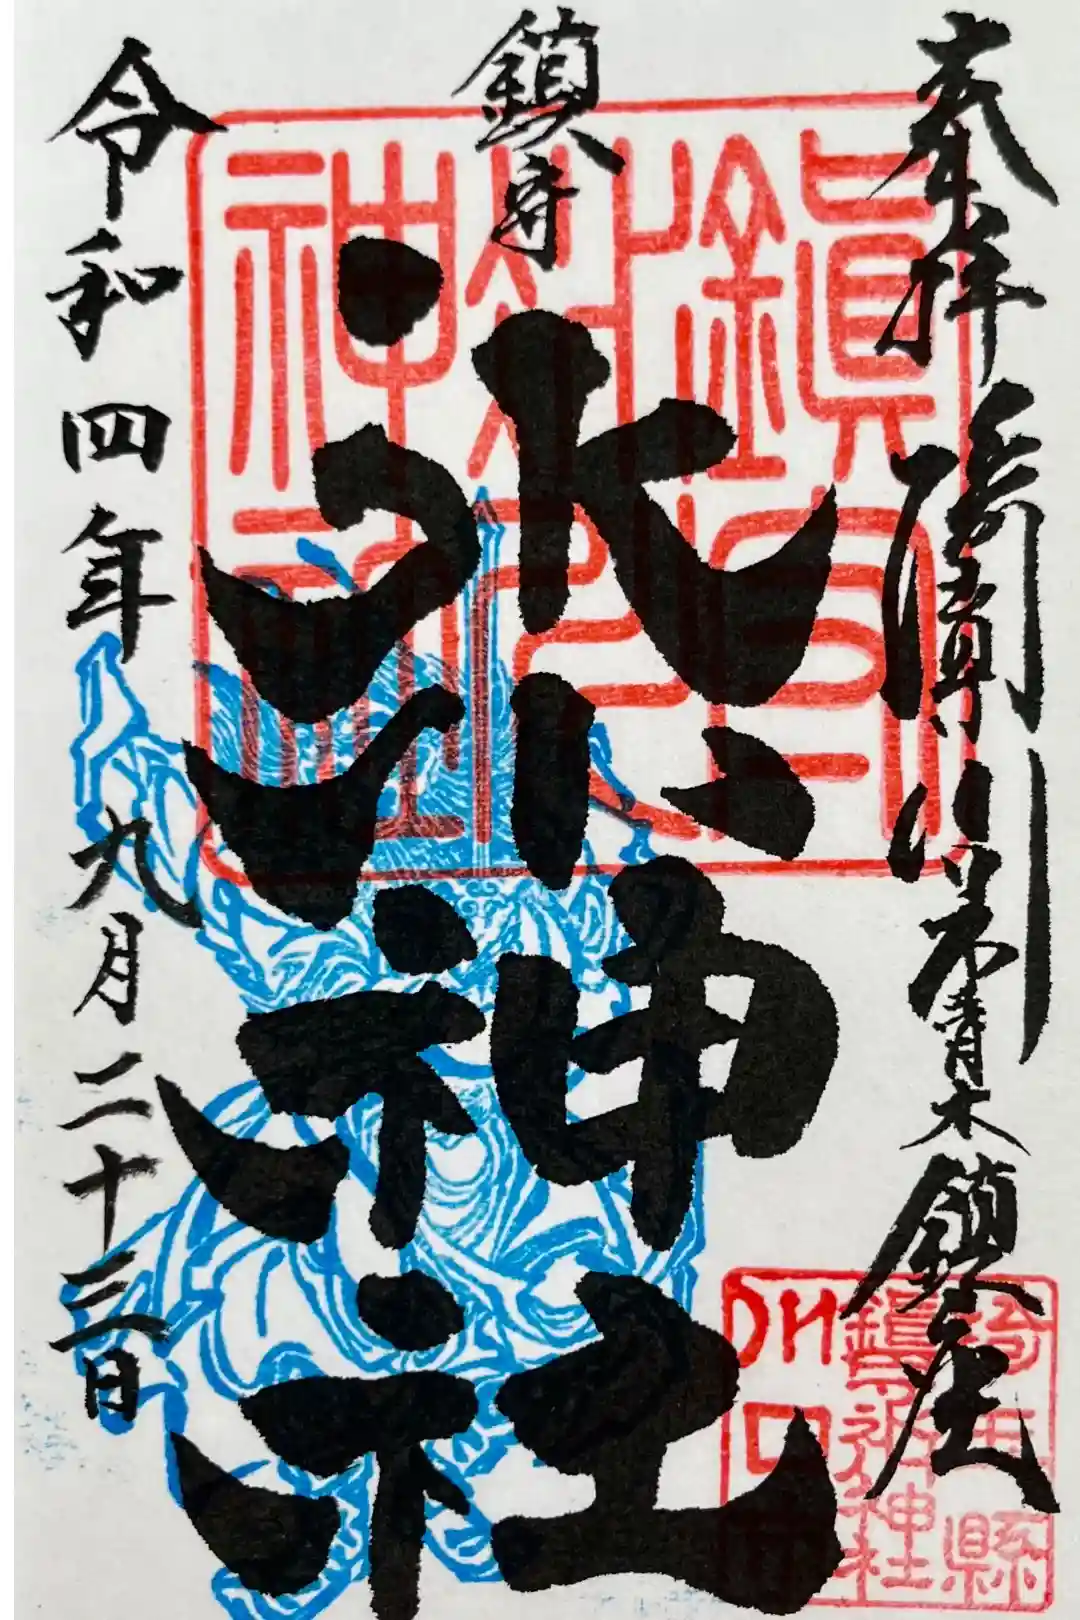 奉拝
埼玉縣川口青木鎮座
鎮守
氷川神社
令和四年九月二十三日
鎮守氷川神社
埼玉縣
川口市
鎮守氷川神社